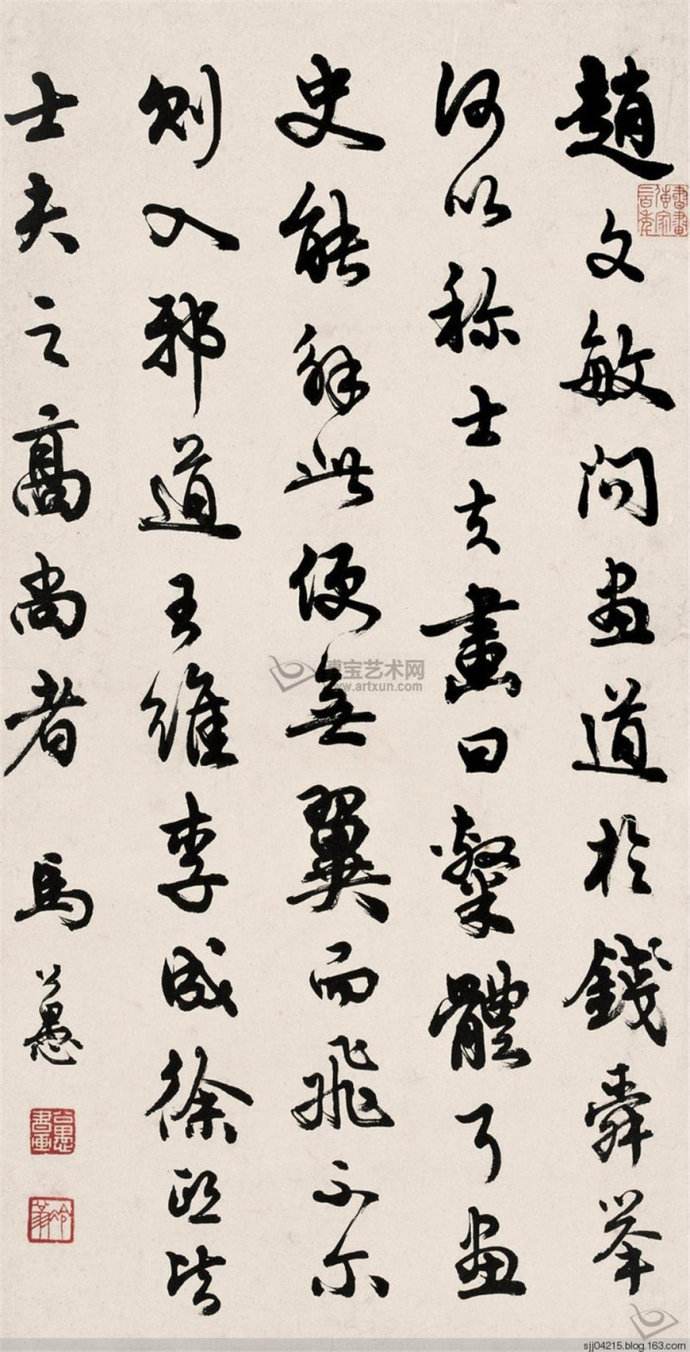 趙文敏問畫道於錢舜舉
何以称士夫畫曰隸體耳畫
史能解此便無翼而飛不尔
則入邪道王維李成徐熙皆
士夫之高尚者 馬公愚
公愚書畫
博宝艺术网
www.artxun.com
sjj04215.blog.163.com